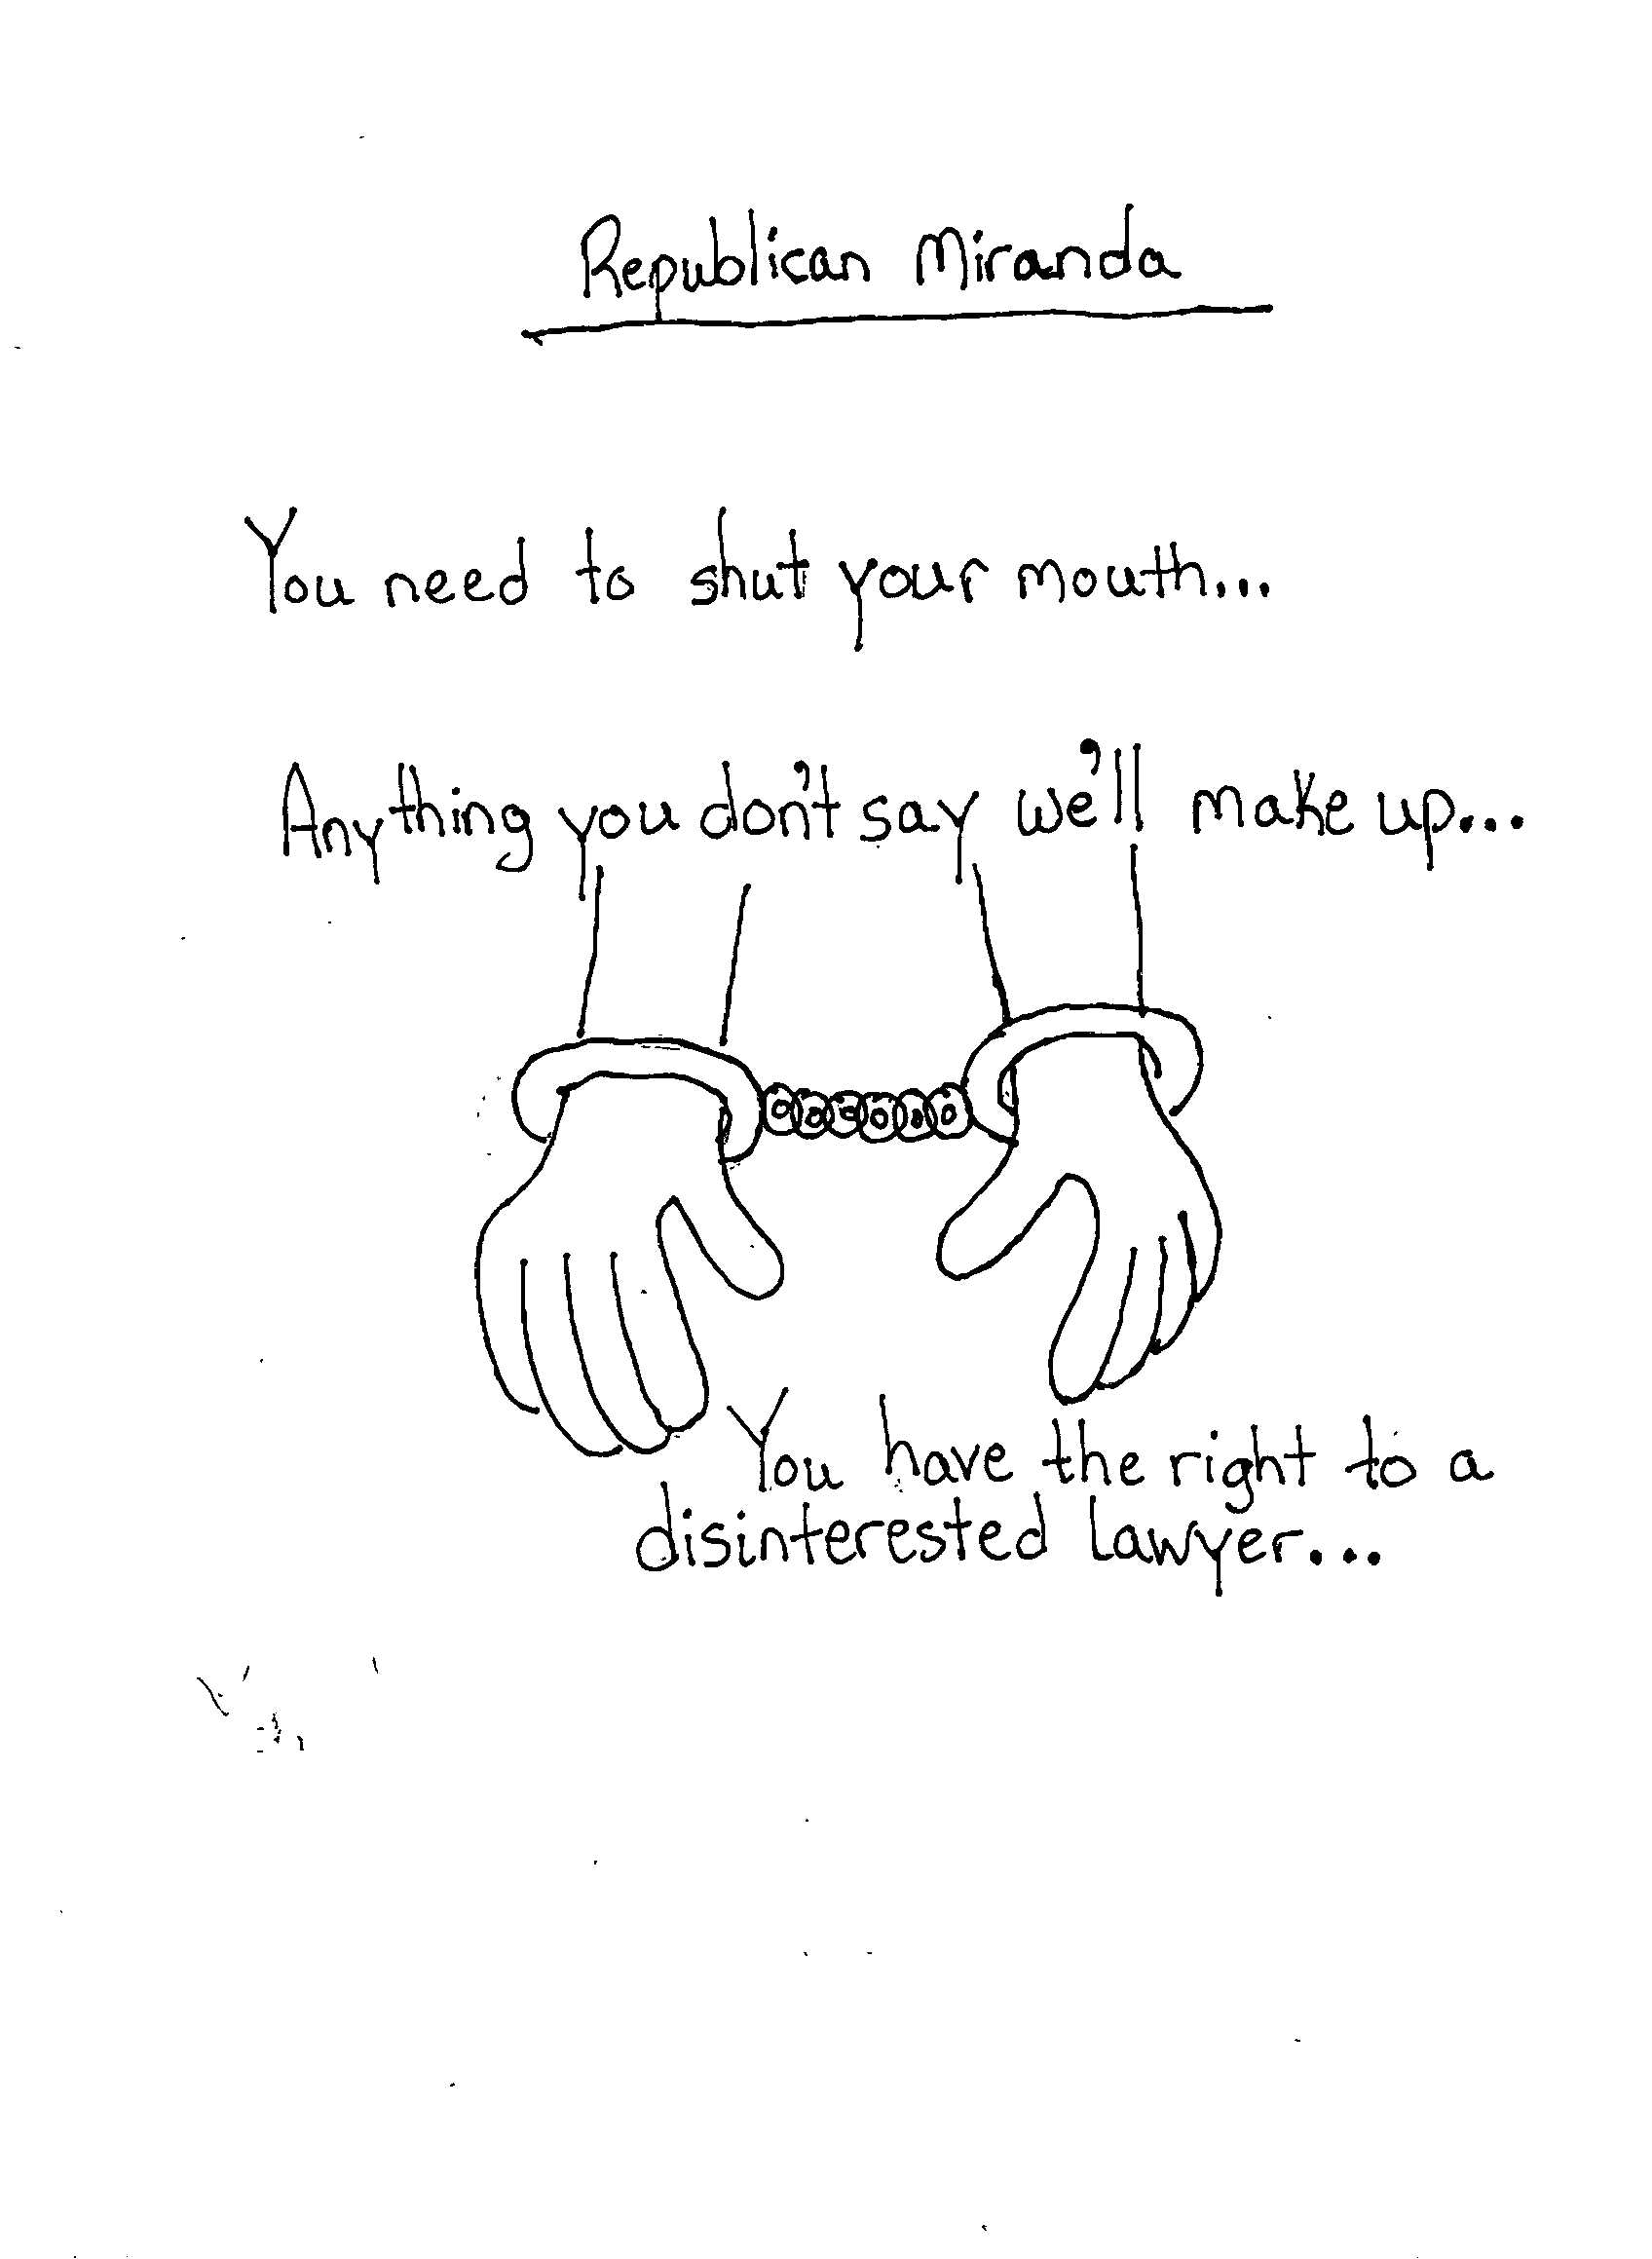 Republican Miranda
You need to shut your mouth...
Anything you don't say we'll make up...
You have the right to a
disinterested lawyer...